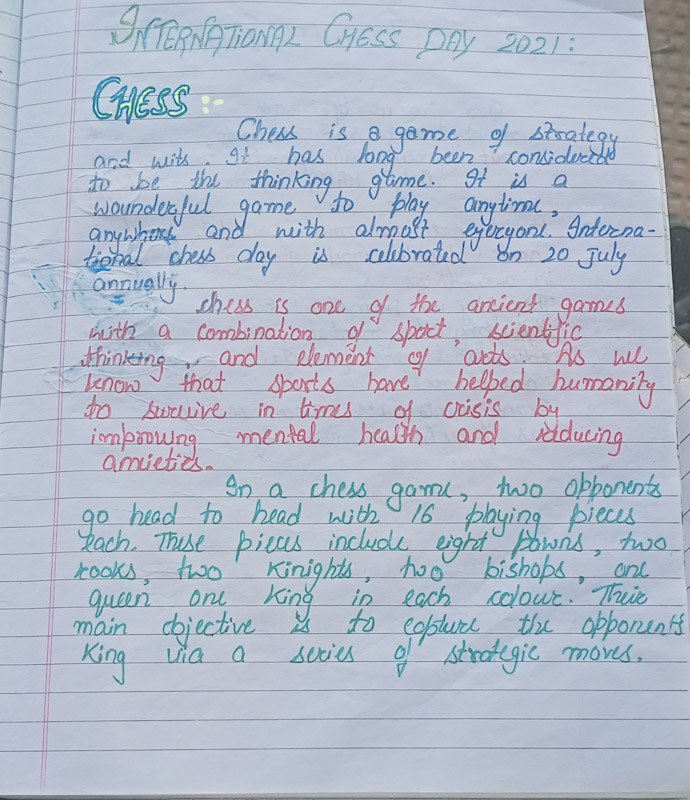 INTERNATIONAL CHESS DAY 2021:
CHESS :-
Chess is a game of strategy
and wits. It has long been considered
to be the thinking game. It is a
wounderful game to play anytime,
anywhere and with almost everyone. Interna-
tional chess day is celebrated on 20 july
annually.
chess is one of the ancient games
with a combination of sport, scientific
thinking, and element of arts. As we
know that sports have helped humanity
to survive in times of crisis by
improwing mental health and reducing
amieties.
In a chess game, two opponents
go head to head with 16 playing pieces
each. These pieces include eight pawns, two
rooks, two Kinights, two bishops, one
queen one King in each colour. Their
main objective is to capture the opponents
King via a series of strategic moves.